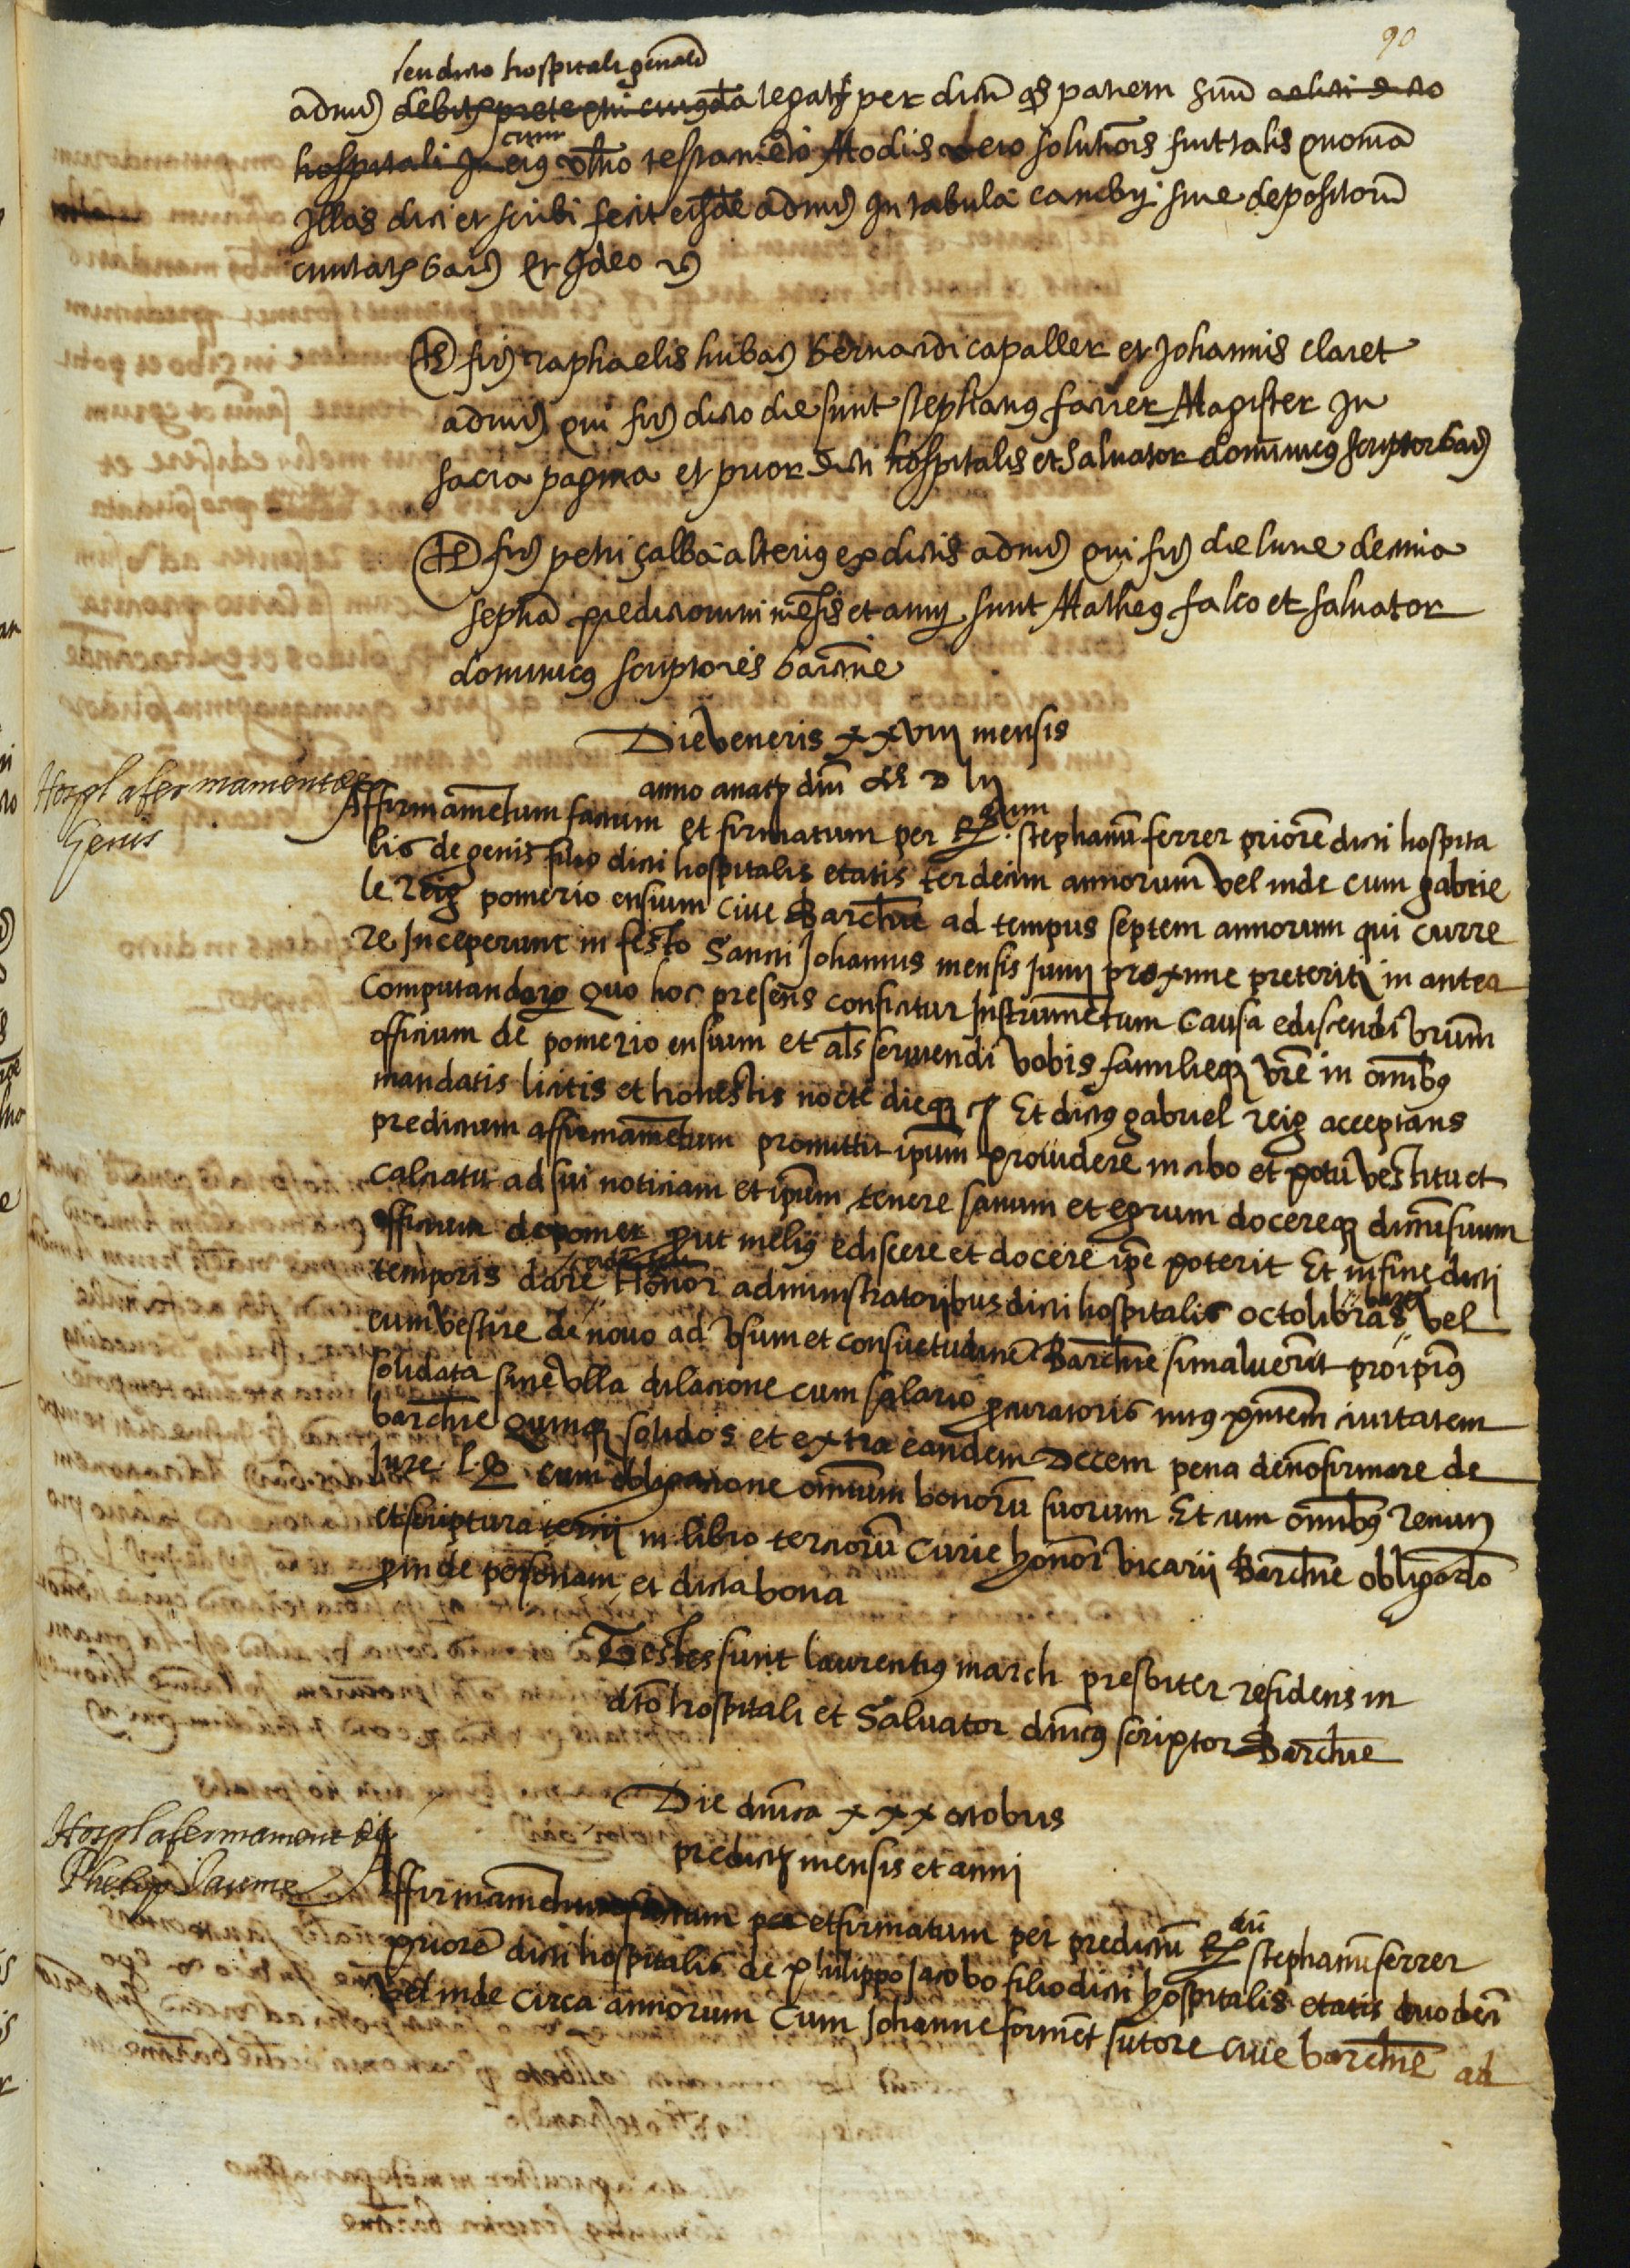 90
seu dicto hospitali gñali
admīs debitis pretextu cuiusda legatȝ per dictū qs̄ patrem suū relicti dicto
hospitali In cum eius vltīo testamēto Modus vero solutiōis fuit talis quoniā
Illas dici et scribi fecit eisdē admīs In tabula cambij siue depositorū
ciuitatȝ barē Et Ideo rē
TS firē raphaelis hubaē bernardi capaller et Johannis claret
admīs qui firē dicto die sunt stephanus farrer Magister In
sacra pagina et prior dicti hospitalis et saluator dominicus scriptor barē
TS firē petri çalba alterius ex dictis admīs qui firē die lune decima
septīa predictorum mēsis et anny sunt Matheus falco et saluator
dominicus scriptores barcīne
Die veneris xxviij mensis
anno anatȝ dnī M D lij
Hospl afermament de
Genis
Affirmamētum factum et firmatum per Rdum stephanū ferrer priorē dicti hospita
lis de genis filio dicti hospitalis etatis terdecim annorum vel inde cum gabrie
le Reig pomerio ensium Ciue Barchīe ad tempus septem annorum qui curre
re Inceperunt in festo Sancti Johannis mensis Junij proxime preteriti in antea
Computandorȝ Quo hoc presens conficitur Instrumētum Causa ediscendi vrūm
officium de pomerio ensium et als seruiendi vobis familieqȝ vrē in omībȝ
mandatis licitis et honestis nocte dieqȝ rȝ Et dictus gabriel reig acceptans
predictum affirmamētum promittit ipsum prouidere in cibo et potu vestitu et
calciatu ad sui noticiam et ipsum tenere sanum et egrum docereqȝ dictū suum
officium de pomer prout melius ediscere et docere ipse poterit Et in fine dicti
temporis dare Honor administratoribus dicti hospitalis octo libras barȝ vel
eum vestire de nouo ad vsum et consuetudinē Barchīe si maluerint pro ipsius
solidata sine vlla dilacione cum salario pcuratoris intus pntem ciuitatem
barchīe Quinqȝ solidos et extra eandem Decem pena de nō firmare de
Jure l.ȝ cum obligacione omnium bonorū suorum Et cum omībȝ renunȝ
et scriptura tercij in libro terciorū Curie honor vicarij Barchīe obligādo
p inde personam et dicta bona
Testes sunt laurentius march presbiter residens in
dcto hospitali et Saluator dnīcus scriptor Barchīe
Die dnīca xxx octobris
predictȝ mensis et anni
Hospl afermament de
Phelip Jaume
Affirmamentum factum per et firmatum per predictū Rdū stephanū ferrer
priorē dicti hospitalis de Philippo Jacobo filio dicti hospitalis etatis duodeci
vel inde circa annorum Cum Johanne formēt sutore ciue barchīe ad